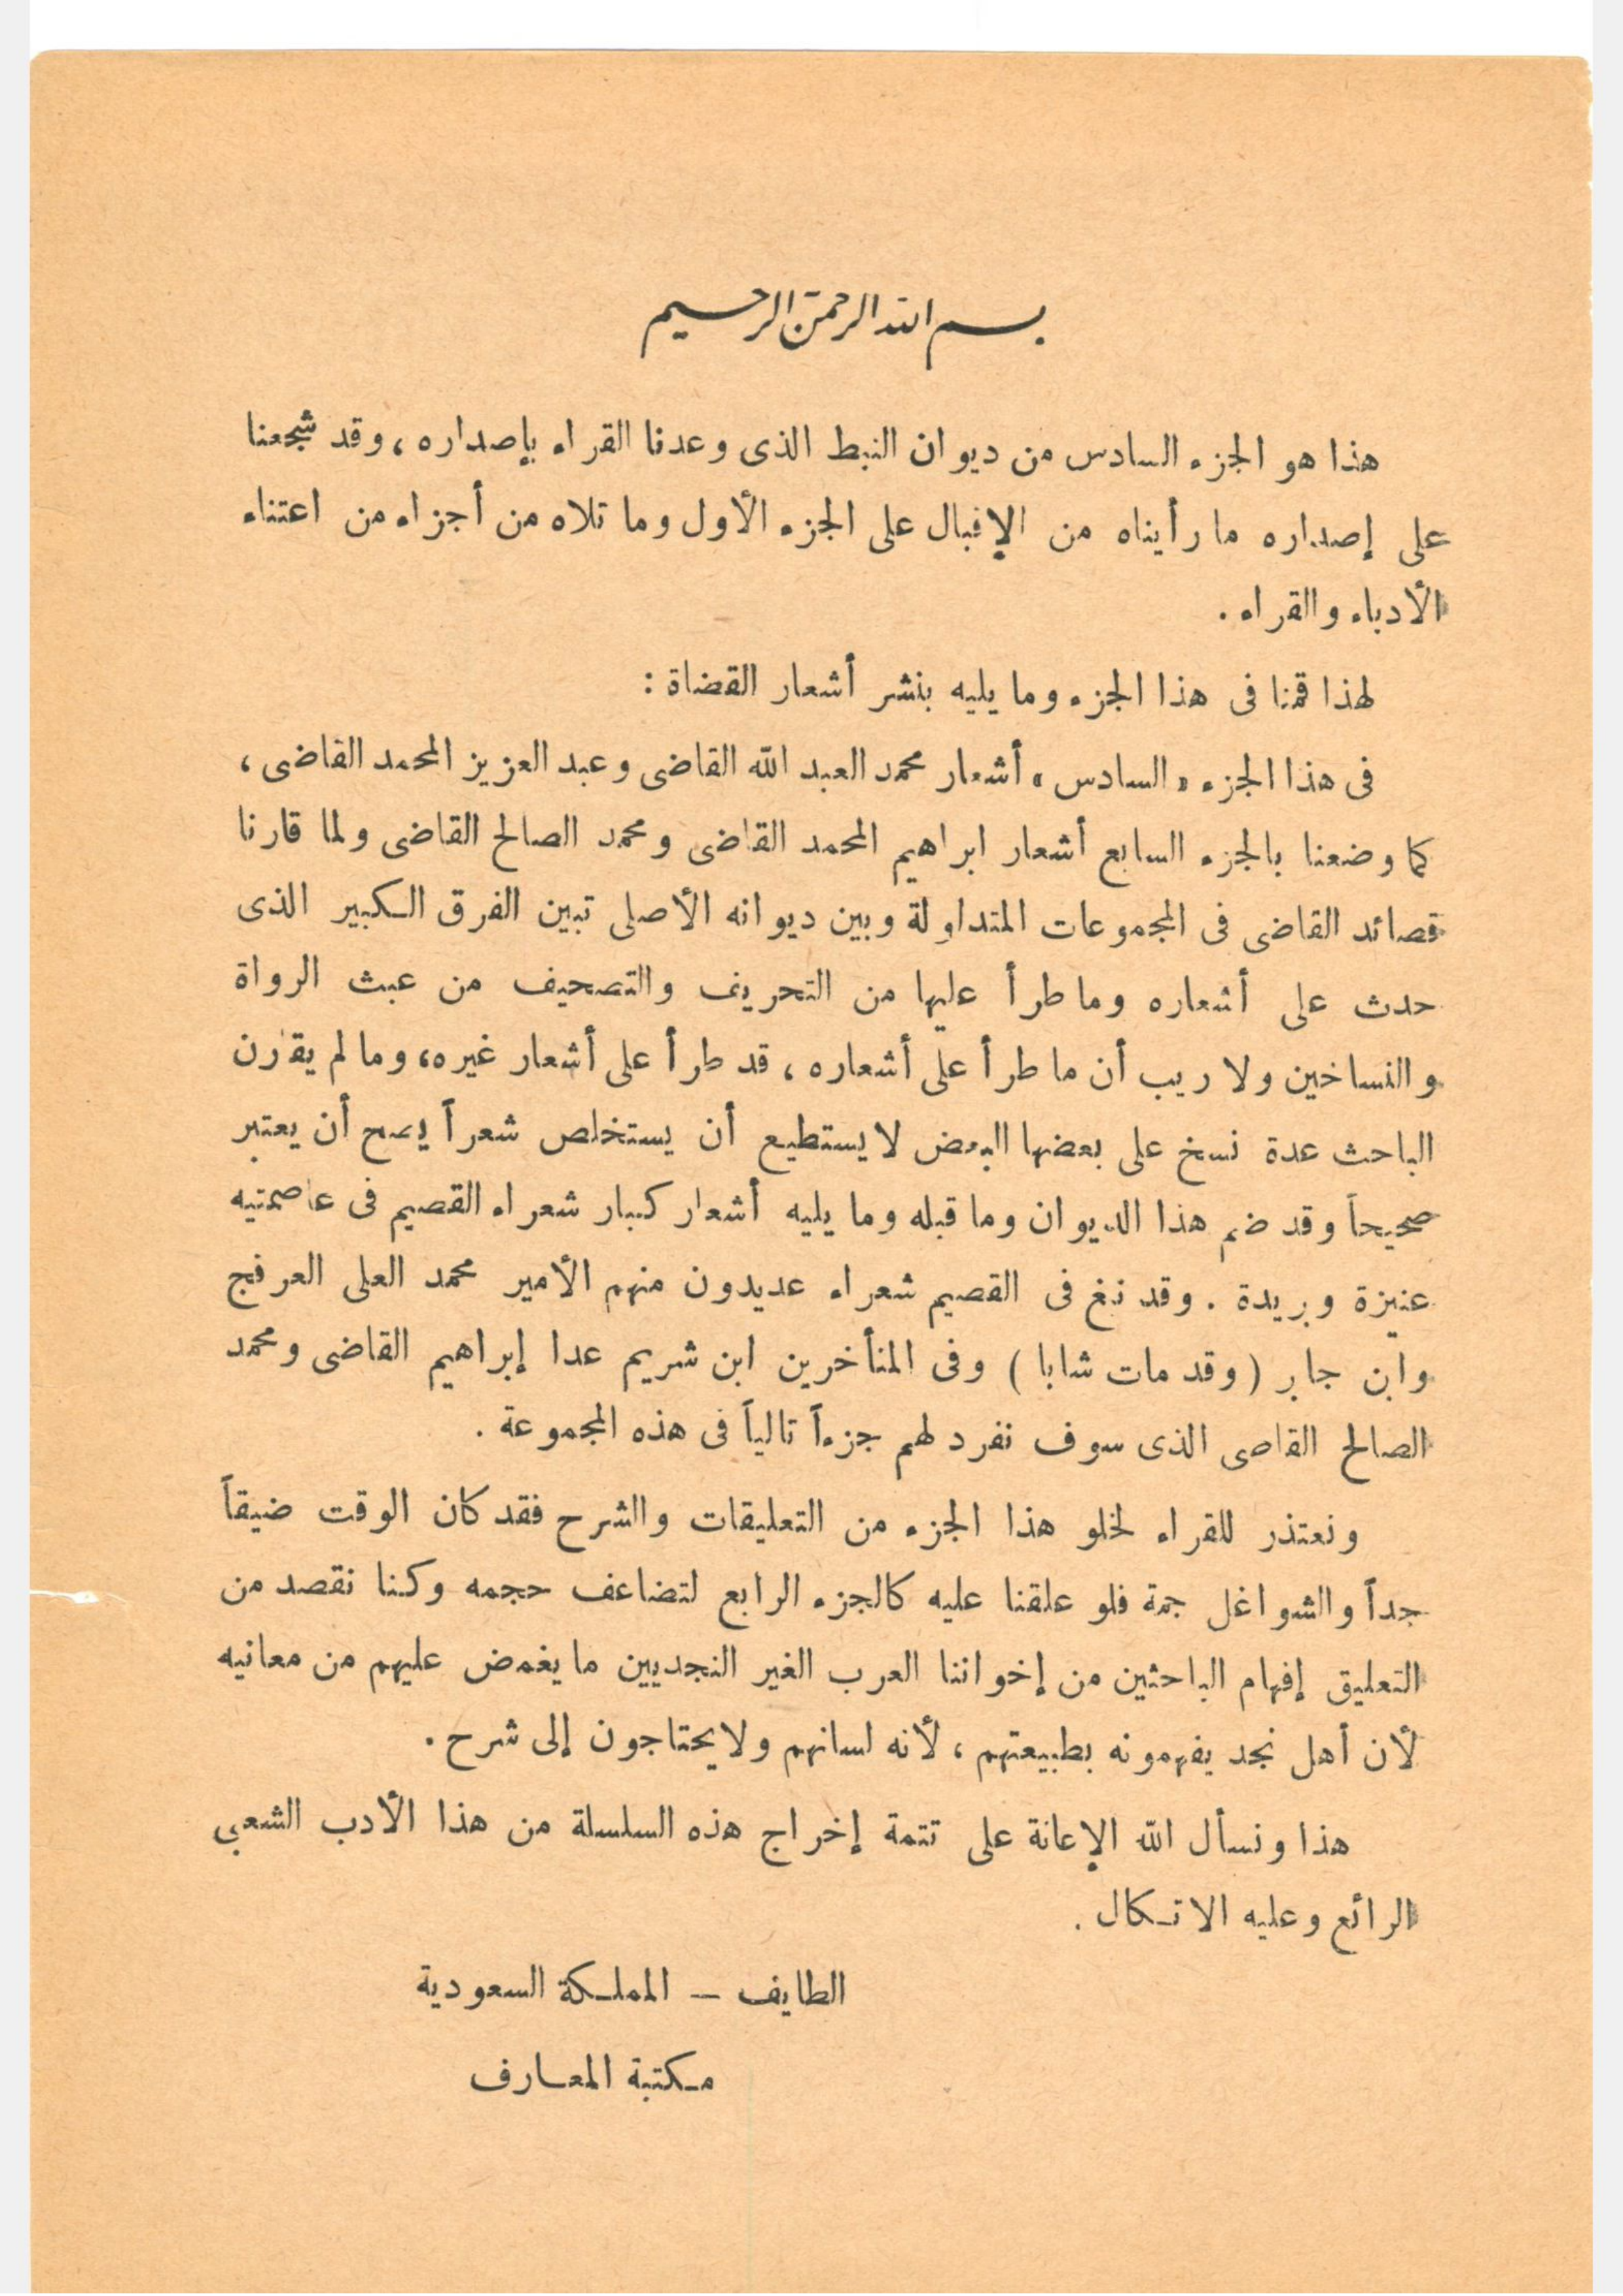 بسم الله الرحمن الرحيم
هذا هو الجزء السادس من ديوان النبط الذى وعدنا القراء بإصداره، وقد شجعنا
على إصداره ما رأيناه من الإقبال على الجزء الأول وما تلاه من أجزاء من اعتناء
الأدباء والقراء .
لهذا قمنا فى هذا الجزء وما يليه بنشر أشعار القضاة :
فى هذا الجزء « السادس » أشعار محمد العبد الله القاضى وعبد العزيز المحمد القاضى ،
كما وضعنا بالجزء السابع أشعار ابراهيم المحمد القاضى ومحمد الصالح القاضى ولما قارنا
قصائد القاضى فى المجموعات المتداولة وبين ديوانه الأصلى تبين الفرق الكبير الذى
حدث على أشعاره وما طرأ عليها من التحريف والتصحيف من عبث الرواة
والنساخين ولا ريب أن ما طرأ على أشعاره ، قد طرأ على أشعار غيره، وما لم يقارن
الباحث عدة نسخ على بعضها البعض لا يستطيع أن يستخلص شعراً يصح أن يعتبر
صحيحاً وقد ضم هذا الديوان وما قبله وما يليه أشعار كبار شعراء القصيم فى عاصمتيه
عنيزة وبريدة . وقد نبغ فى القصيم شعراء عديدون منهم الأمير محمد العلى العرفج
وابن جابر ( وقد مات شابا ) وفى المتأخرين ابن شريم عدا إبراهيم القاضى ومحمد
الصالح القاضى الذى سوف نفرد لهم جزءاً تالياً فى هذه المجموعة .
ونعتذر للقراء لخلو هذا الجزء من التعليقات والشرح فقد كان الوقت ضيقاً
جداً والشواغل جمة فلو علقنا عليه كالجزء الرابع لتضاعف حجمه وكنا نقصد من
التعليق إفهام الباحثين من إخواننا العرب الغير النجديين ما يغمض عليهم من معانيه
لأن أهل نجد يفهمونه بطبيعتهم ، لأنه لسانهم ولا يحتاجون إلى شرح .
هذا ونسأل الله الإعانة على تتمة إخراج هذه السلسلة من هذا الأدب الشعبى
الرائع وعليه الاتكال .
الطايف – المملكة السعودية
مكتبة المعارف